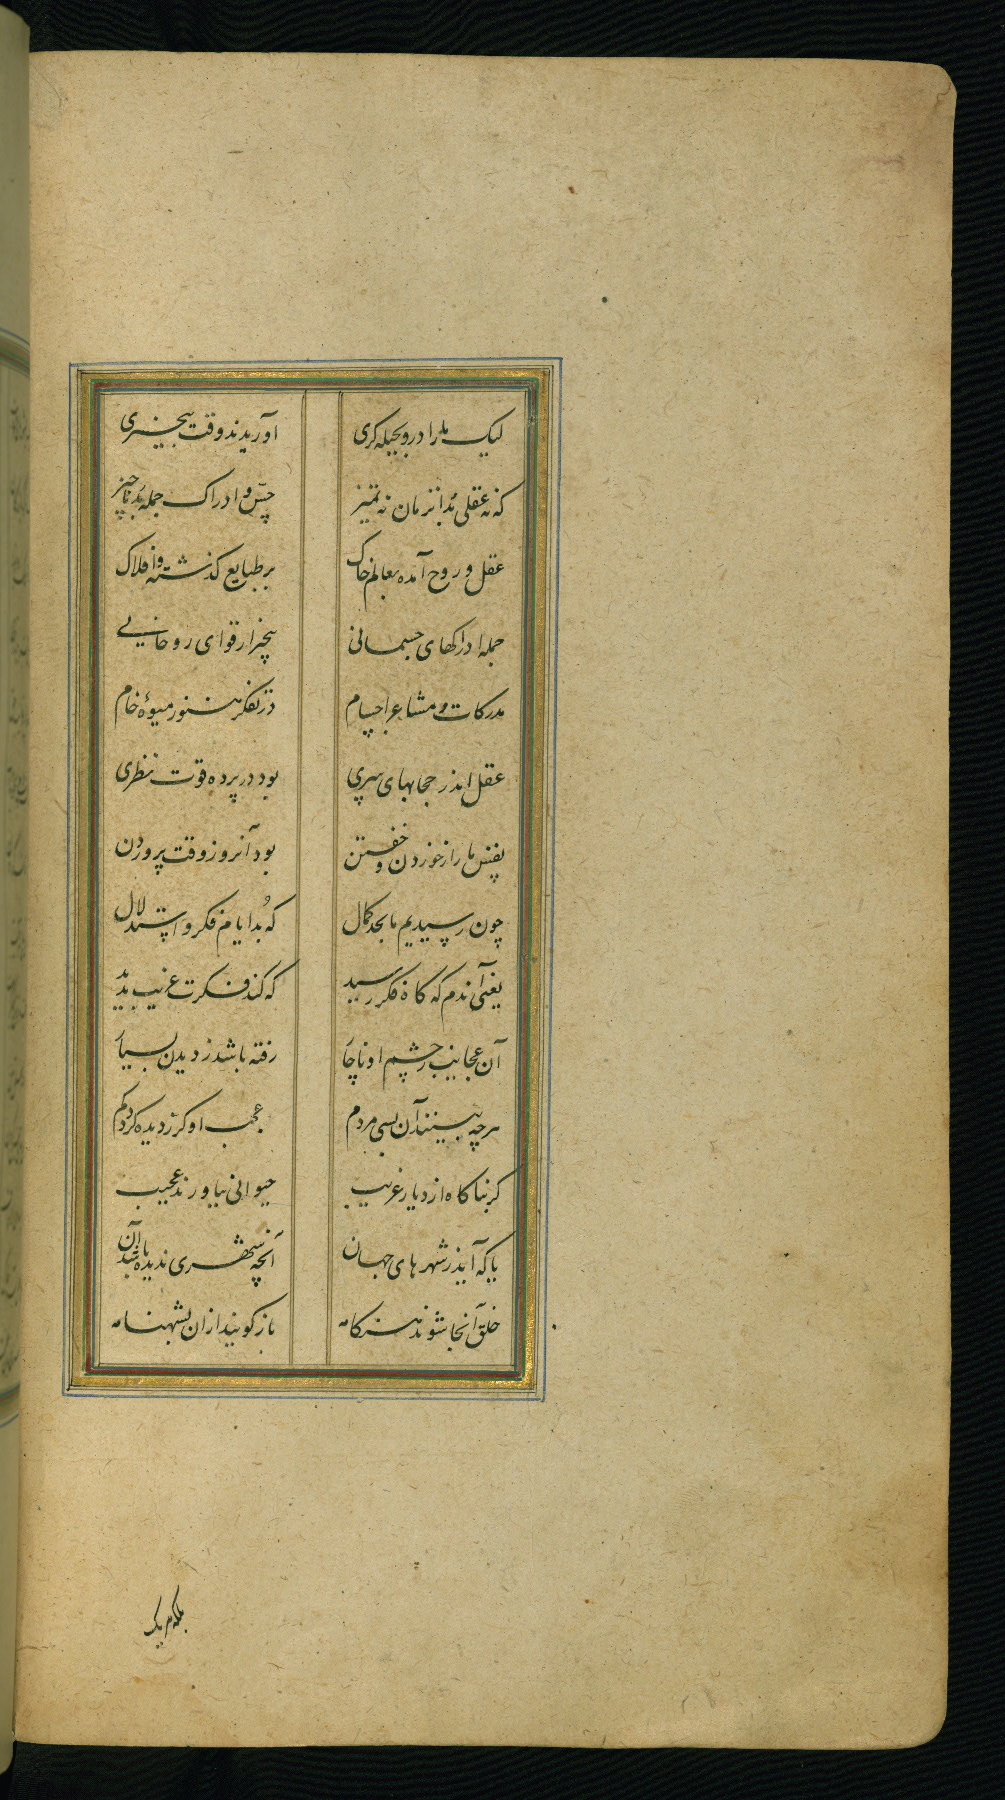 لیک ما را درو بحیله کری آوریدند وقت بیخبری
که نه عقلی بُد آنزمان نه تمیز حسّ و ادراک جمله بُد ناچیز
عقل و روح آمده بعالم خاک بر طبایع گذشته و افلاک
جمله ادراکهای جسمانی بیخبر از قوای روحانی
مدرکات و مشاعر اجسام در تفکر هنوز میوهٔ خام
عقل اندر حجابهای سری بود در پرده قوت نظری
نفس ما را ز خوردن و خفتن بود آنروز وقت پروردن
چون رسیدیم ما بحد کمال که بُد ایام فکر و استدلال
یعنی آندم که گاه فکر رسید که کند فکرت غریب پدید
آن عجایب ز چشم او ناچار رفته باشد ز دیدن بسیار
هرچه بینند آن بسی مردم عجب او کرز دیده کردد کم
کر بناکاه از دیار غریب حیوانی بیاورند عجیب
یا که آید ز شهرهای جهان آنچه شهری ندیده باشد آن
خلق آنجا شوند هنکامه باز کویند ازان بشهنامه
بلکه هر یک